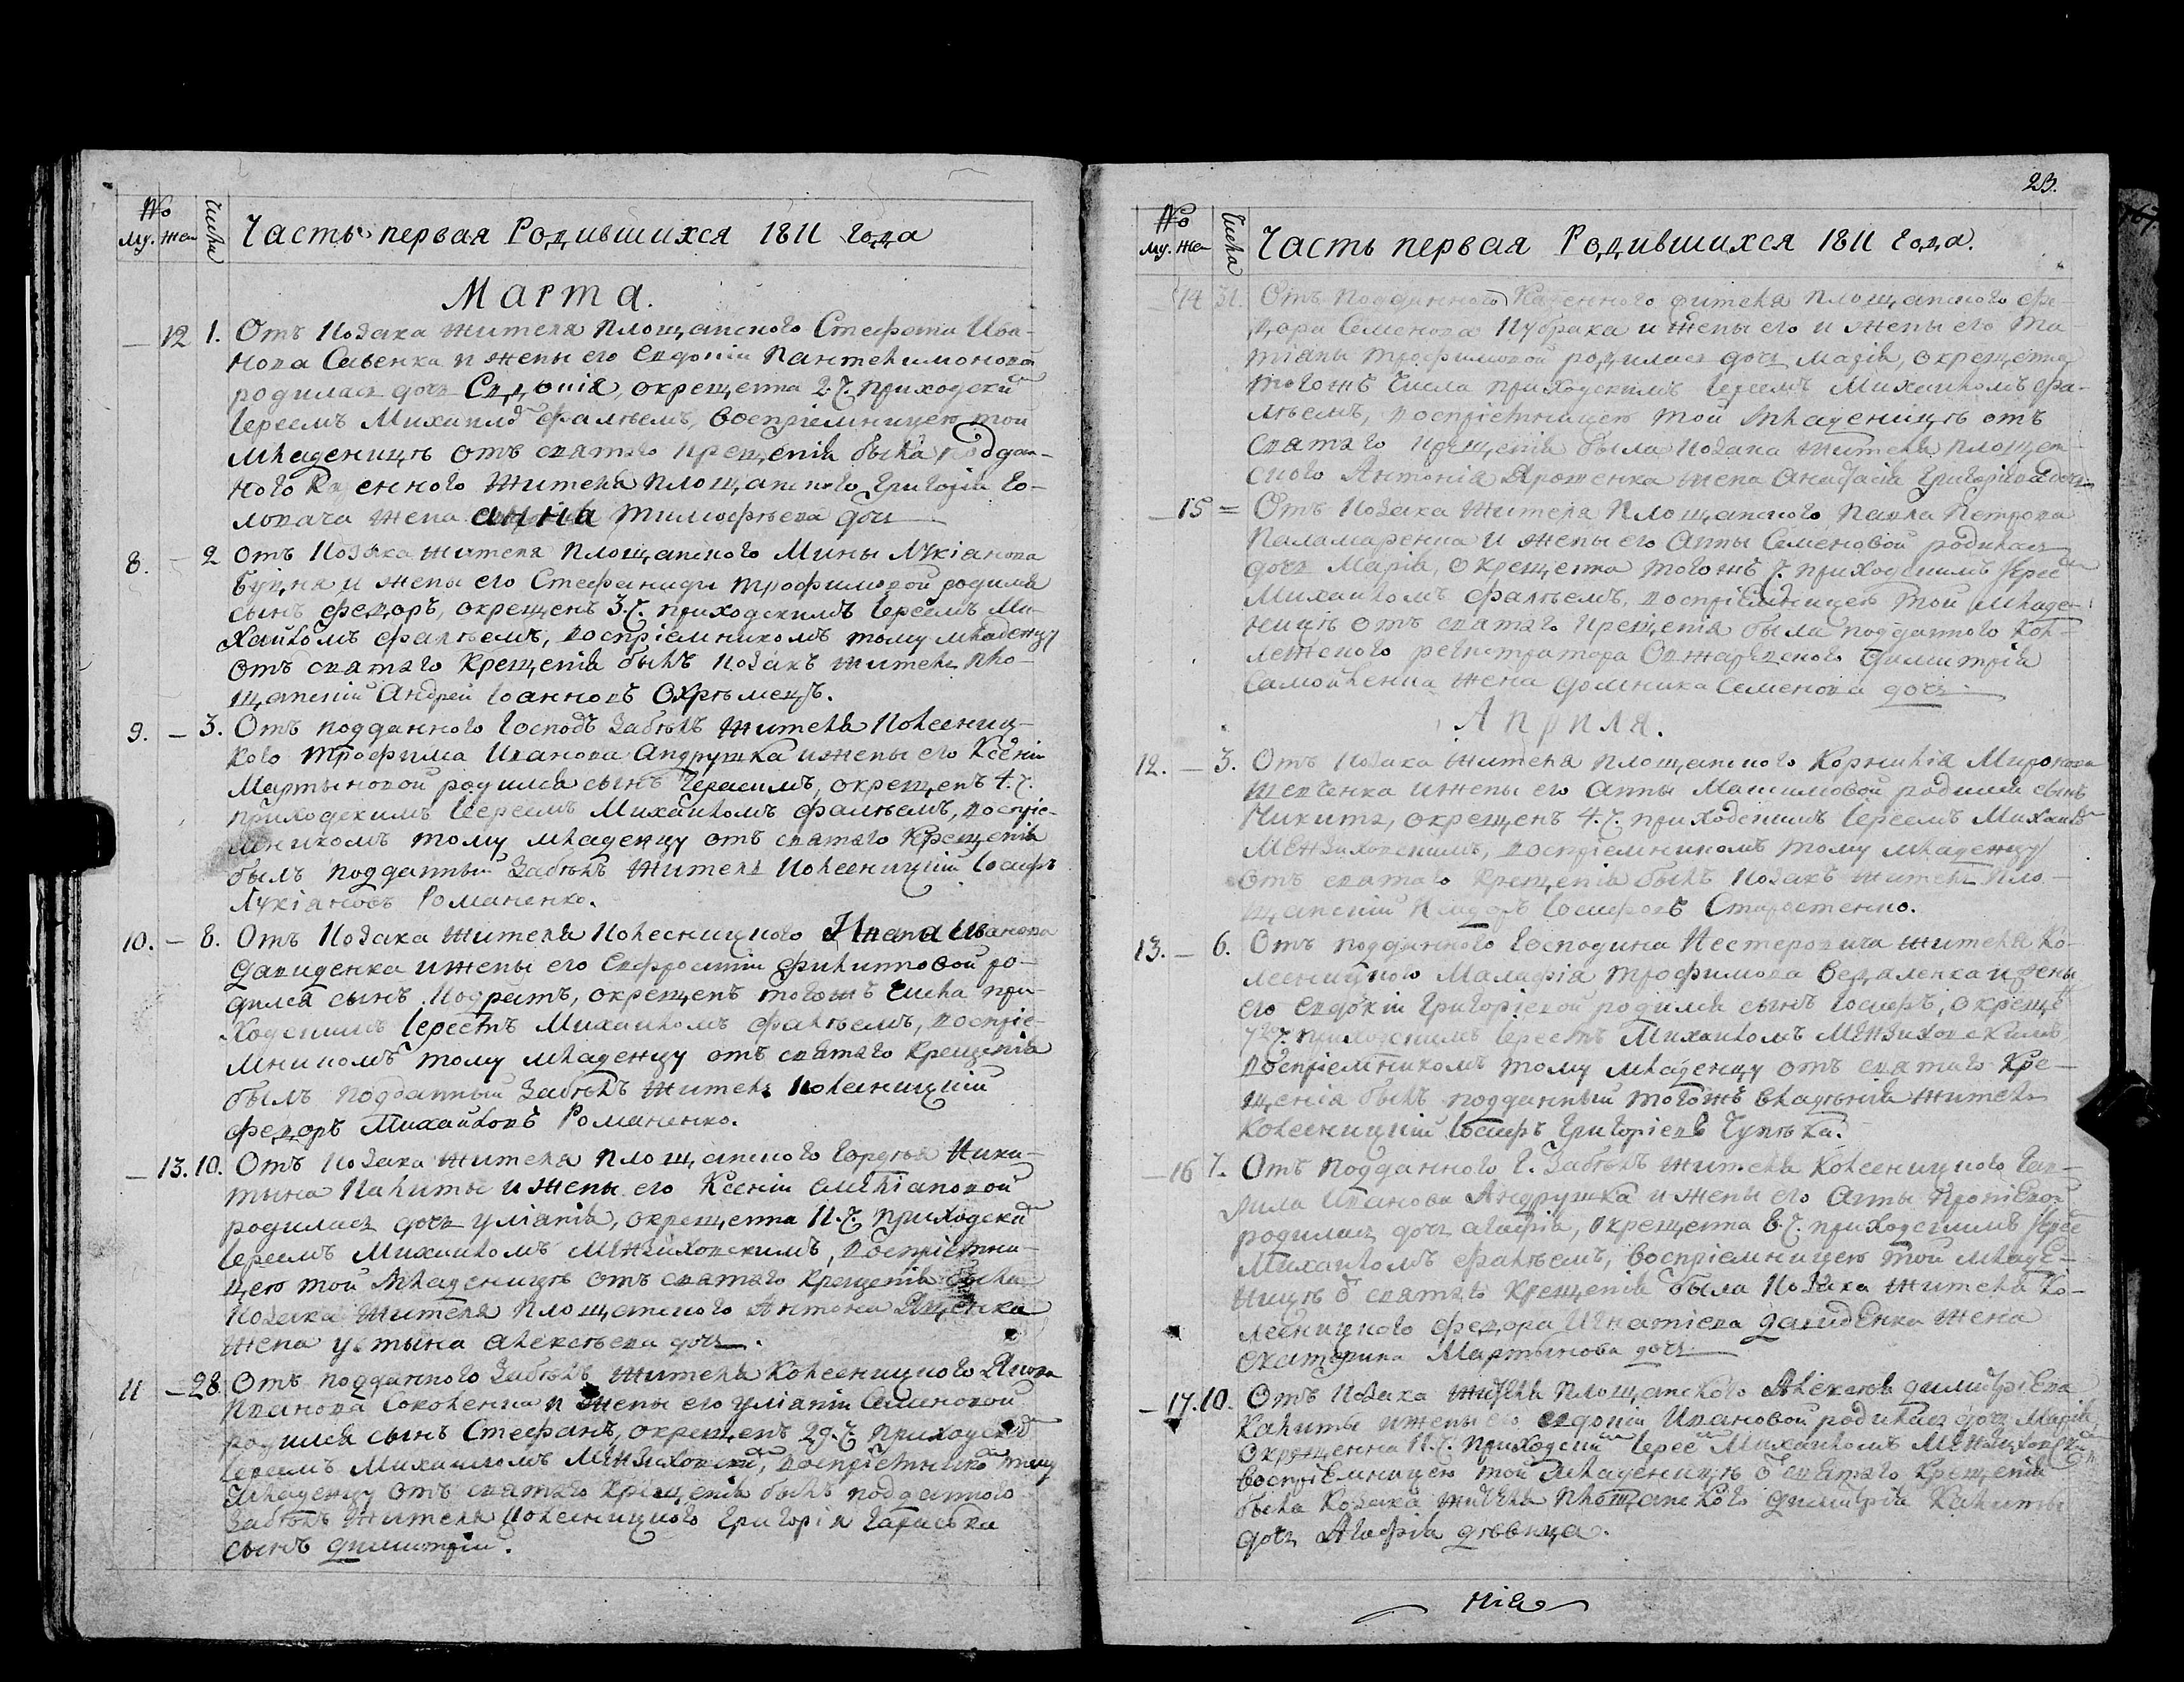 №
му. же. Числа Часть первая Родившихся 1811 года
Марта.
— 12 1. Отъ козака жителя площанского Стефана Ива-
нова Савенка и жены его Евдокіи Пантелимоновой
родилась дочь Евдокія, окрещенна 2. ч. приходским
Іереемъ Михаиломъ Фалѣемъ, воспріемницею той
младеницѣ отъ святаго крещенія была поддан-
ного Казенного жителя площанского Григорія Го-
ловача жена Анна Тимофѣева дочь
8. — 2 отъ козака жителя площанского Мины Лукіанова
и жены его Стефаниды Трофимовой родился
сынъ Федоръ, окрещенъ 3. ч. приходскимъ Іереемъ Ми-
хайломъ Фалѣемъ, воспріемникомъ тому младенцу
отъ святаго крещенія былъ козакъ житель пло-
щанскій Андрей Іоанновъ Охрѣменъ.
9. — 3. Отъ подданного Господъ Забѣлъ жителя колесниц-
кого Трофима Иванова Андрушка и жены его Ксеніи
Мартыновой родился сынъ Герасимъ, окрещенъ 4. ч.
приходскимъ Іереемъ Михайломъ Фалѣемъ, воспріе-
мникомъ тому младенцу отъ святаго крещенія
былъ подданный Забѣлъ житель колесницкій Іосифъ
Лукіановъ Романенко.
10. — 8. Отъ козака жителя колесницкого Ивана Иванова
Давиденка и жены его Евфросиніи Филипповой ро-
дился сынъ Кодратъ, окрещенъ тогожъ числа при-
ходскимъ Іереемъ Михайломъ Фалѣемъ, воспріе-
мникомъ тому младенцу отъ святаго крещенія
былъ подданный Забѣлъ житель колесницкій
Федоръ Михайловъ Романенко.
— 13. 10. Отъ козака жителя площанского Гордѣя Ники-
тына Калиты и жены его Ксеніи Емеліановой
родилась дочь Уліанія, окрещенна 11. ч. приходским
Іереемъ Михайломъ Мензиховскимъ, воспріемни-
цею той младеницѣ отъ святаго крещенія была
козака жителя площанского Антона Яценка
жена Устына Алексѣева дочь.
11 — 28. Отъ подданного Забѣлъ жителя колесницкого Якова
Иванова Соколенка и жены его Уліаніи Семеновой
родился сынъ Стефанъ, окрещенъ 29. ч. приходским
Іереемъ Михайломъ Мензиховским, воспріемнико тому
младенцу отъ святаго крещенія былъ подданного
Забѣлъ жителя колесницкого Григорія Гараська
сынъ Димитрій.
23.
№
му. же. Числа Часть первая Родившихся 1811 года.
14 31. Отъ подданного Казенного жителя площанского Фе-
дора Семенова Кубрака и жены его и жены его Та-
тіаны Трофимовой родилась дочь Марія, окрещенна
тогожъ числа приходскимъ Іереемъ Михайломъ Фа-
лѣемъ, воспріемницею той младеницѣ отъ
святаго крещенія была козака жителя площан-
ского Антонія Ярошенка жена Анастасія Григоріева дочь
— 15 = Отъ козака жителя площанского Павла Петрова
Паламаренка и жены его Анны Семеновой родилась
дочь Марія, окрещенна тогожъ ч. приходскимъ Іерее
Михайломъ Фалѣемъ, воспріемницею той младе-
ницѣ отъ святаго крещенія была подданного Кол-
лежского регистратора Димитрія
Самойленка жена Домника Семенова дочь
Априля.
12. — 3. Отъ козака жителя площанского Корнилія Миронова
Шевченка и жены его Анны Максимовой родился сынъ
Никита, окрещенъ 4. ч. приходскимъ Іереемъ Михаило
Мензиховскимъ, воспріемникомъ тому младенцу
отъ святаго крещенія былъ козакъ житель пло-
щанскій Іосифовъ Старостенко.
13. — 6. Отъ подданного Господина Нестеровича жителя ко-
лесницкого Малафія Трофимова и жены
его Евдокіи Григоріевой родился сынъ Іосифъ, окреще
7го ч. приходскимъ Іереемъ Михайломъ Мензиховскимъ,
воспріемникомъ тому младенцу отъ святаго кре-
щенія былъ подданный тогожъ владѣнія житель
колесницкій Іосифъ Григоріевъ Чупѣка.
— 16 7. Отъ подданного Г. Забѣлъ жителя колесницкого Гав-
рила Иванова Андрушка и жены его Анны
родилась дочь Агафія, окрещенна 8. ч. приходскимъ Іерее
Михайломъ Фалѣемъ, воспріемницею той младе-
ницѣ ѿ святаго крещенія была козака жителя ко-
лесницкого Федора Игнатіева Давиденка жена
Екатерина Мартынова дочь
— 17. 10. Отъ козака жителя площанского Алексѣя Димитріева
Калиты и жены его Евдокіи Ивановой родилась дочь Марія,
окрещенна 11. ч. приходским Іерее Михайломъ Мензиховским
воспріемницею той младеницѣ ѿ святаго крещенія
была козака жителя площанского Димитрія Калиты
дочь Агафія дѣвица.